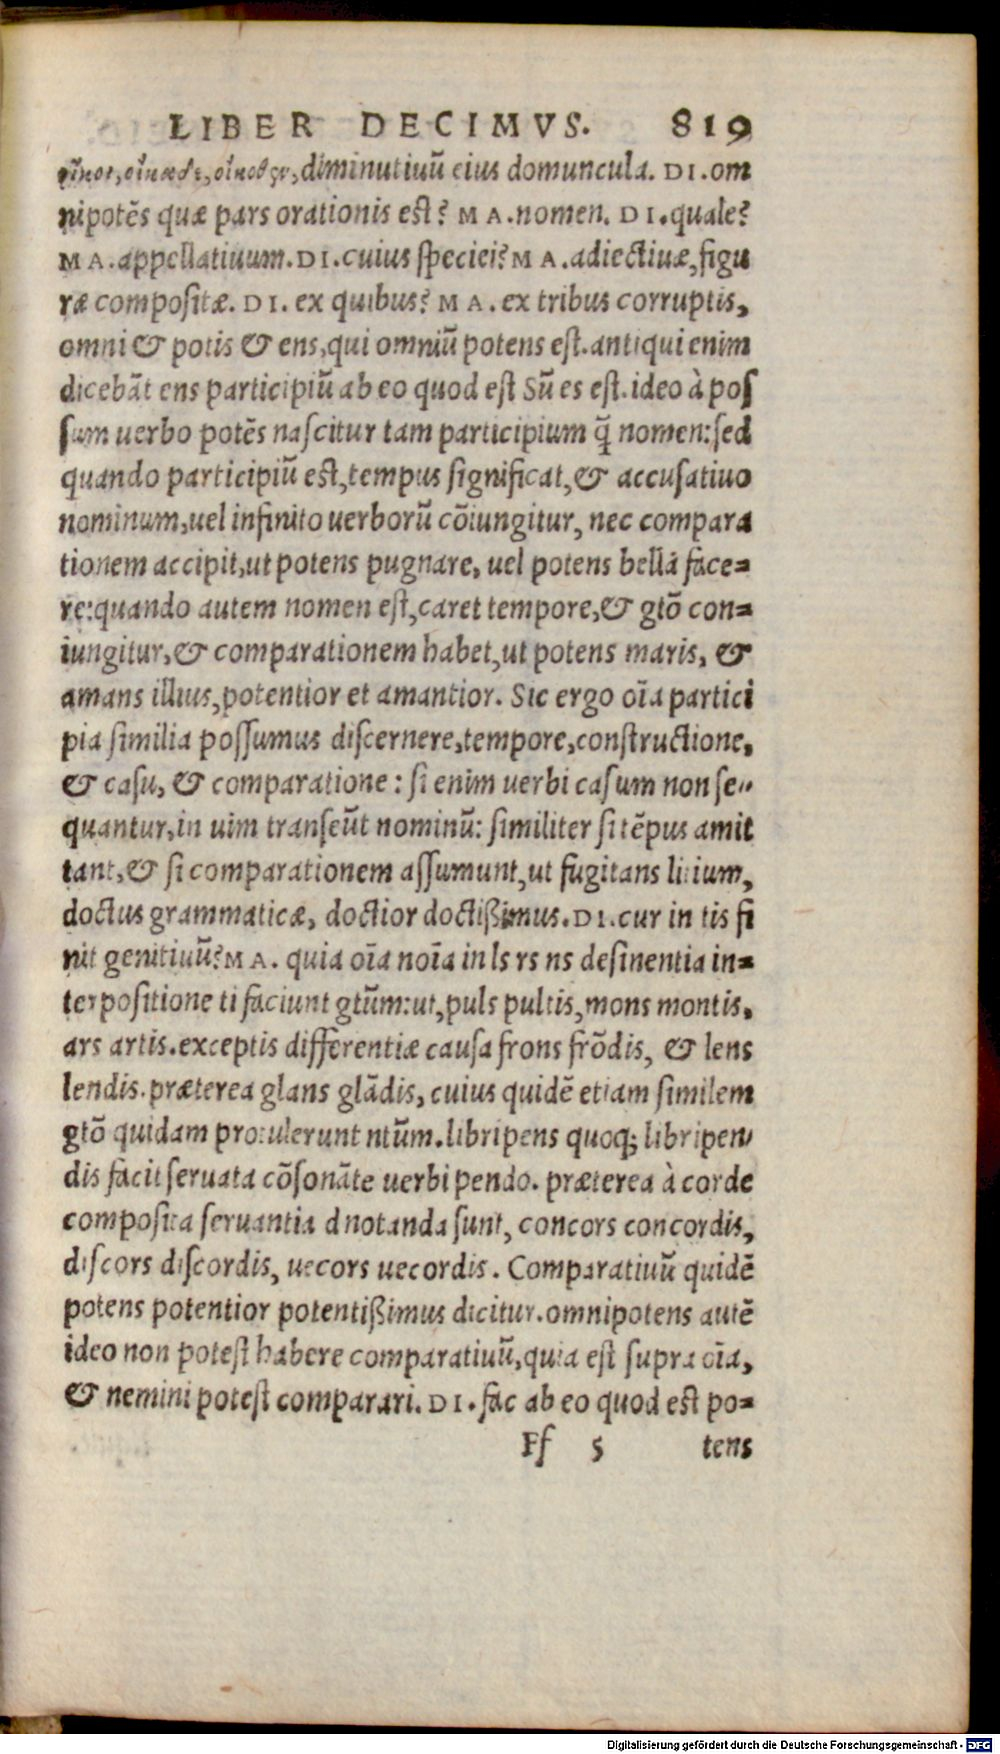 LIBER DECIMVS. 819
diminutiuũ eius domuncula. DI. om
nipotẽs quæ pars orationis est? MA. nomen. DI. quale?
MA. appellatiuum. DI. cuius speciei? MA. adiectiuæ, figu
ræ compositæ. DI. ex quibus? MA. ex tribus corruptis,
omni & potis & ens, qui omniũ potens est. antiqui enim
dicebãt ens participiũ ab eo quod est Sũ es est. ideo à pos
sum uerbo potẽs nascitur tam participium q̃ nomen: sed
quando participiũ est, tempus significat, & accusatiuo
nominum, uel infinito uerborũ cõiungitur, nec compara
tionem accipit, ut potens pugnare, uel potens bella face=
re: quando autem nomen est, caret tempore, & gtõ con=
iungitur, & comparationem habet, ut potens maris, &
amans illius, potentior et amantior. Sic ergo oĩa partici
pia similia possumus discernere, tempore, constructione,
& casu, & comparatione: si enim uerbi casum non se=
quantur, in uim transeũt nominũ: similiter si tẽpus amit
tant, & si comparationem assumunt, ut fugitans litium,
doctus grammaticæ, doctior doctißimus. DI. cur in tis fi
nit genitiuũ? MA. quia oĩa noĩa in ls rs ns desinentia in=
terpositione ti faciunt gtũm: ut, puls pultis, mons montis,
ars artis. exceptis differentiæ causa frons frõdis, & lens
lendis. præterea glans glãdis, cuius quidẽ etiam similem
gtõ quidam protulerunt ntũm. libripens quoq; libripen
dis facit seruata cõsonãte uerbi pendo. præterea à corde
composita seruantia d notanda sunt, concors concordis,
discors discordis, uecors uecordis. Comparatiuũ quidẽ
potens potentior potentißimus dicitur. omnipotens autẽ
ideo non potest habere comparatiuũ, quia est supra oĩa,
& nemini potest comparari. DI. fac ab eo quod est po=
Ff 5 tens
Digitalisierung gefördert durch die Deutsche Forschungsgemeinschaft - DFG